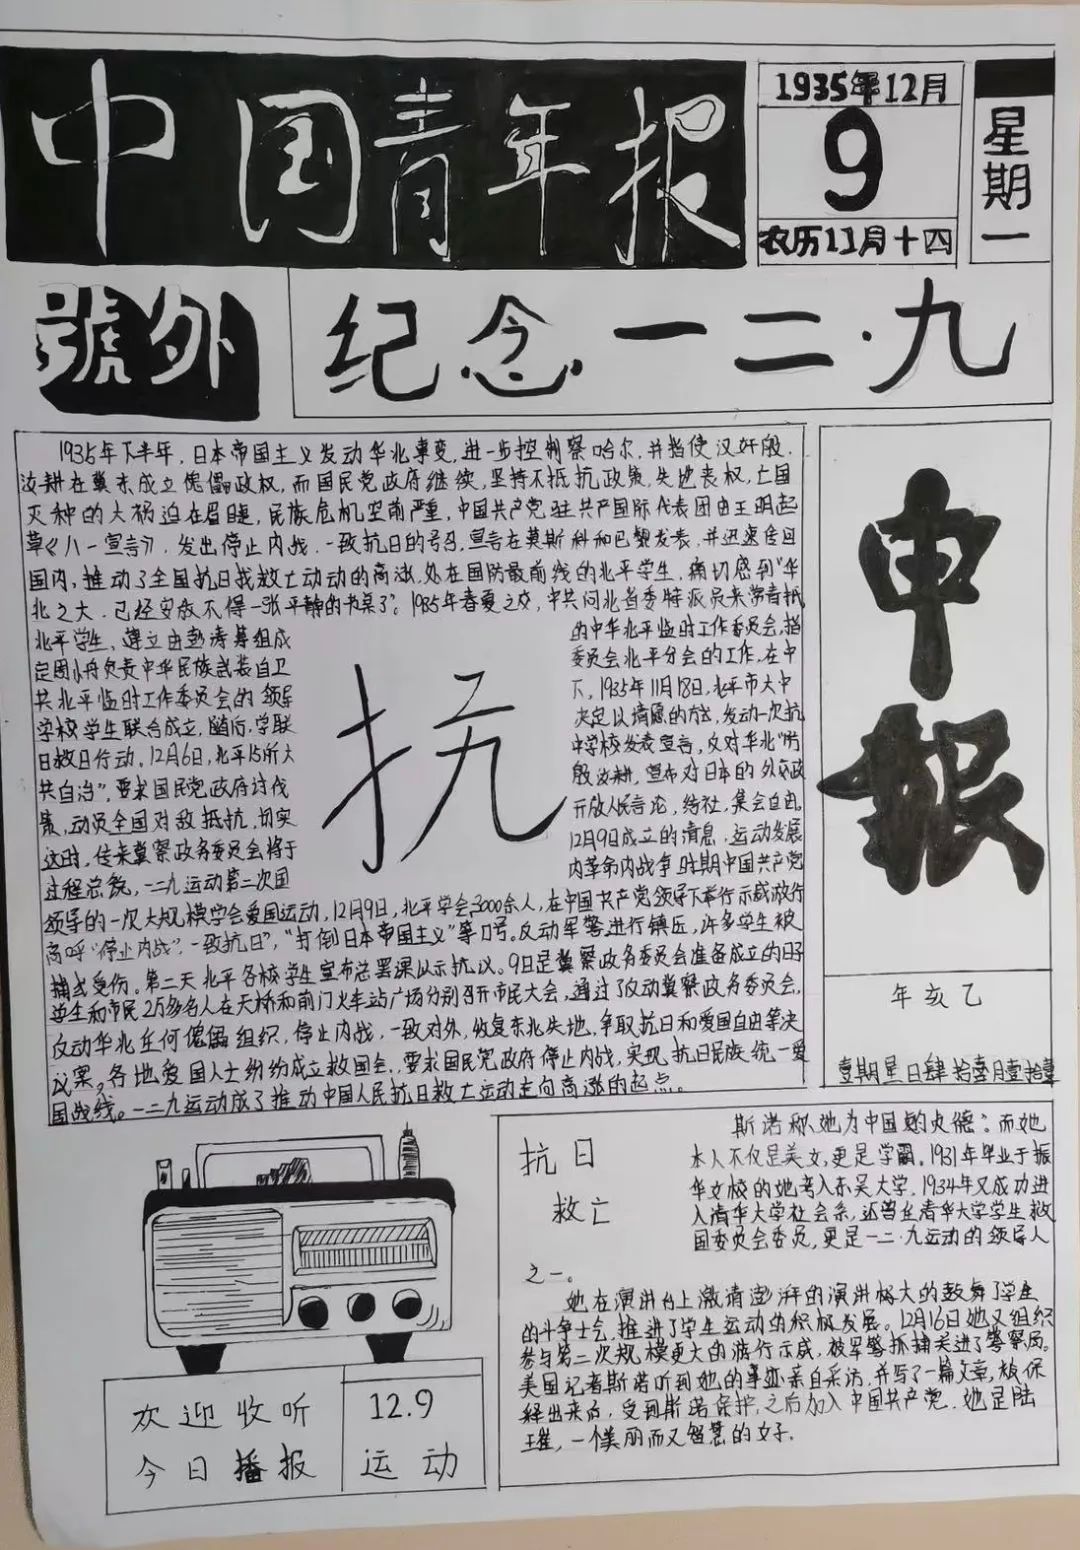 中国青年报
1935年12月
9
农历11月十四
星期一
號外
纪念一二·九
1935年下半年，日本帝国主义发动华北事变，进一步控制察哈尔，并指使汉奸殷
汝耕在冀东成立傀儡政权，而国民党政府继续，坚持不抵抗政策，失地丧权，亡国
灭种的大祸迫在眉睫，民族危机空前严重，中国共产党驻共产国际代表团由王明起
草《八一宣言》，发出停止内战，一致抗日的号召，宣言在莫斯科和巴黎发表，并迅速传回
国内，推动了全国抗日救亡动动的高潮，处在国防最前线的北平学生，痛切感到“华
北之大，已经安放不得一张平静的书桌了”。1935年春夏之交，中共河北省委特派员来常青抵
北平学生，建立由彭涛等组成
的中华北平临时工作委员会，指
定周小舟负责中华民族武装自卫
委员会北平分会的工作，在中
共北平临时工作委员会的领导
下，1935年11月18日，北平市大中
学校学生联合成立，随后，学联
决定以请愿的方式，发动一次抗
日救日行动，12月6日，北平15所大
中学校发表宣言，反对华北“防
共自治”，要求国民党政府讨伐
殷汝耕，宣布对日本的外交政
策，动员全国对敌抵抗，切实
开放人民言论，结社，集会自由。
这时，传来冀察政务委员会将于
12月9日成立的消息，运动发展
过程总统，一二九运动第二次国
内革命内战争时期中国共产党
领导的一次大规模学会爱国运动，12月9日，北平学会3000余人，在中国共产党领导下举行示威游行
高呼“停止内战”，一致抗日”，“打倒日本帝国主义”等口号。反动军警进行镇压，许多学生被
捕或受伤。第二天北平各校学生宣布总罢课以示抗议。9日是冀察政务委员会准备成立的日子
学生和市民2万多名人在天桥和前门火车站广场分别召开市民大会，通过了反动冀察政务委员会，
反动华北任何傀儡组织，停止内战，一致对外，收复东北失地，争取抗日和爱国自由等决
议案。各地爱国人士纷纷成立救国会，要求国民党政府停止内战，实现抗日民族统一爱
国战线。一二九运动成了推动中国人民抗日救亡运动走向高涨的起点。
抗
申
报
年亥乙
壹期星日肆拾壹月壹拾
欢迎收听
今日播报
12.9
运动
抗日
救亡
斯诺称她为中国贞德：而她
本人不仅是美女，更是学霸。1931年毕业于振
华女校的她考入东吴大学，1934年又成功进
入清华大学社会系，还曾任清华大学学生救
国委员会委员，更是一二·九运动的领导人
之一。
她在演讲台上激情澎湃的演讲极大的鼓舞了学生
的斗争士气，推进了学生运动的积极发展。12月16日她又组织
参与第二次规模更大的游行示威，被军警抓捕关进了警察局。
美国记者斯诺听到她的事迹亲自采访，并写了一篇文章，被保
释出来后，受到斯诺保护，之后加入中国共产党，她是陆
璀，一个美丽而又智慧的女子。